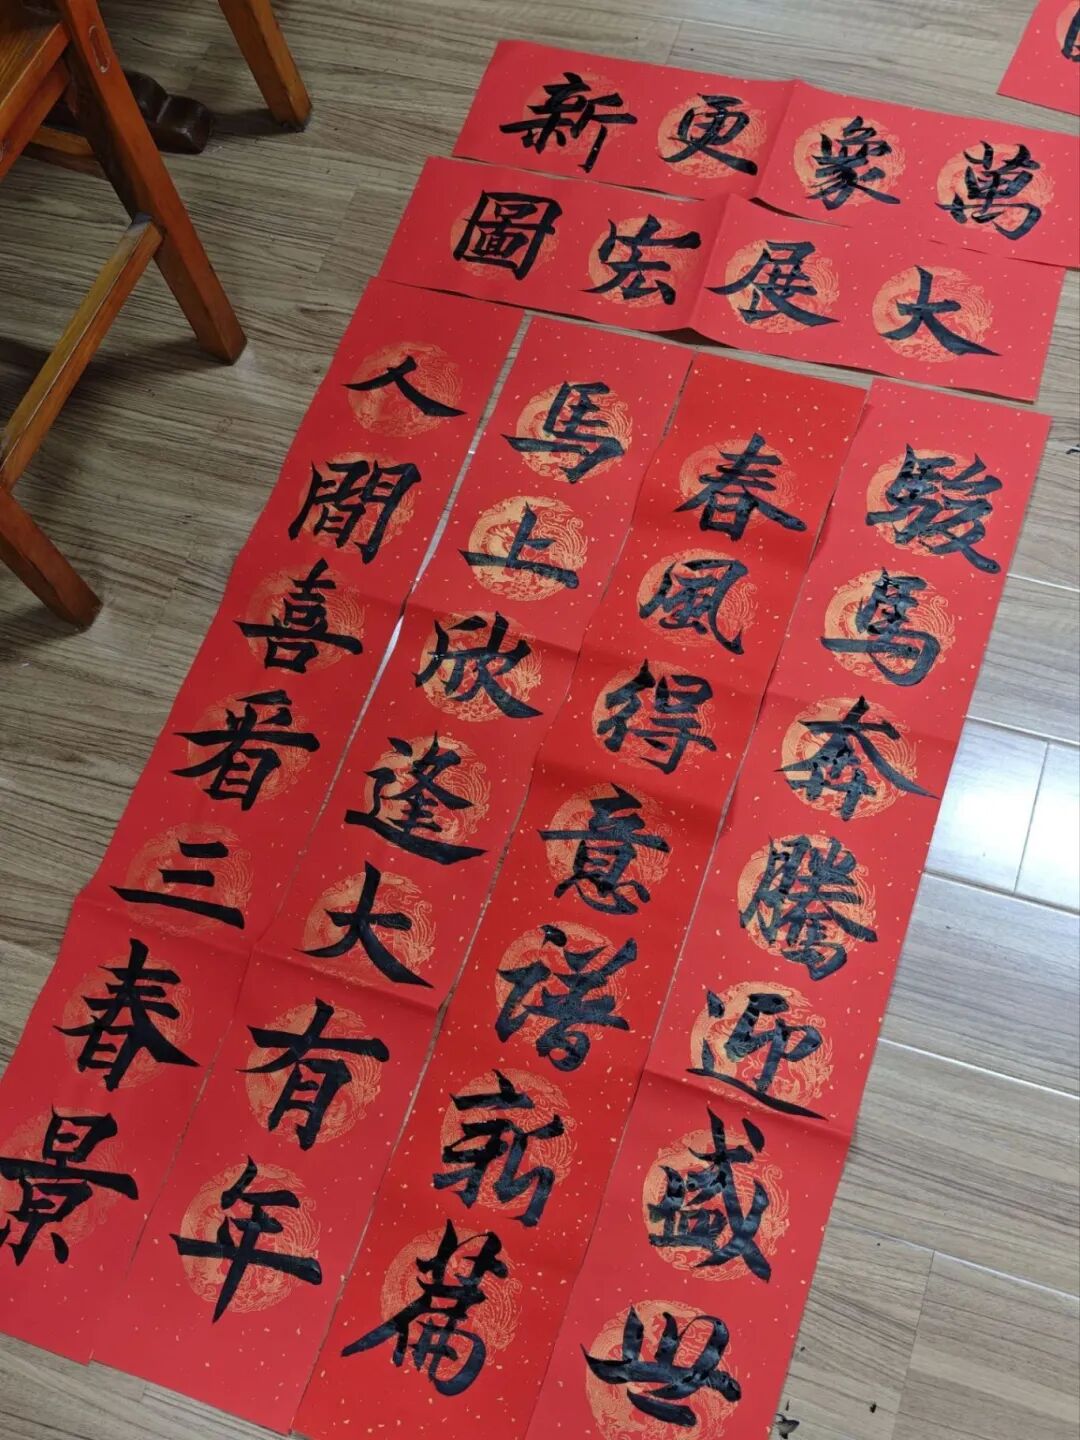 萬象更新
大展宏圖
駿馬奔騰迎盛世
春風得意譜新篇
馬上欣逢大有年
人間喜看三春景